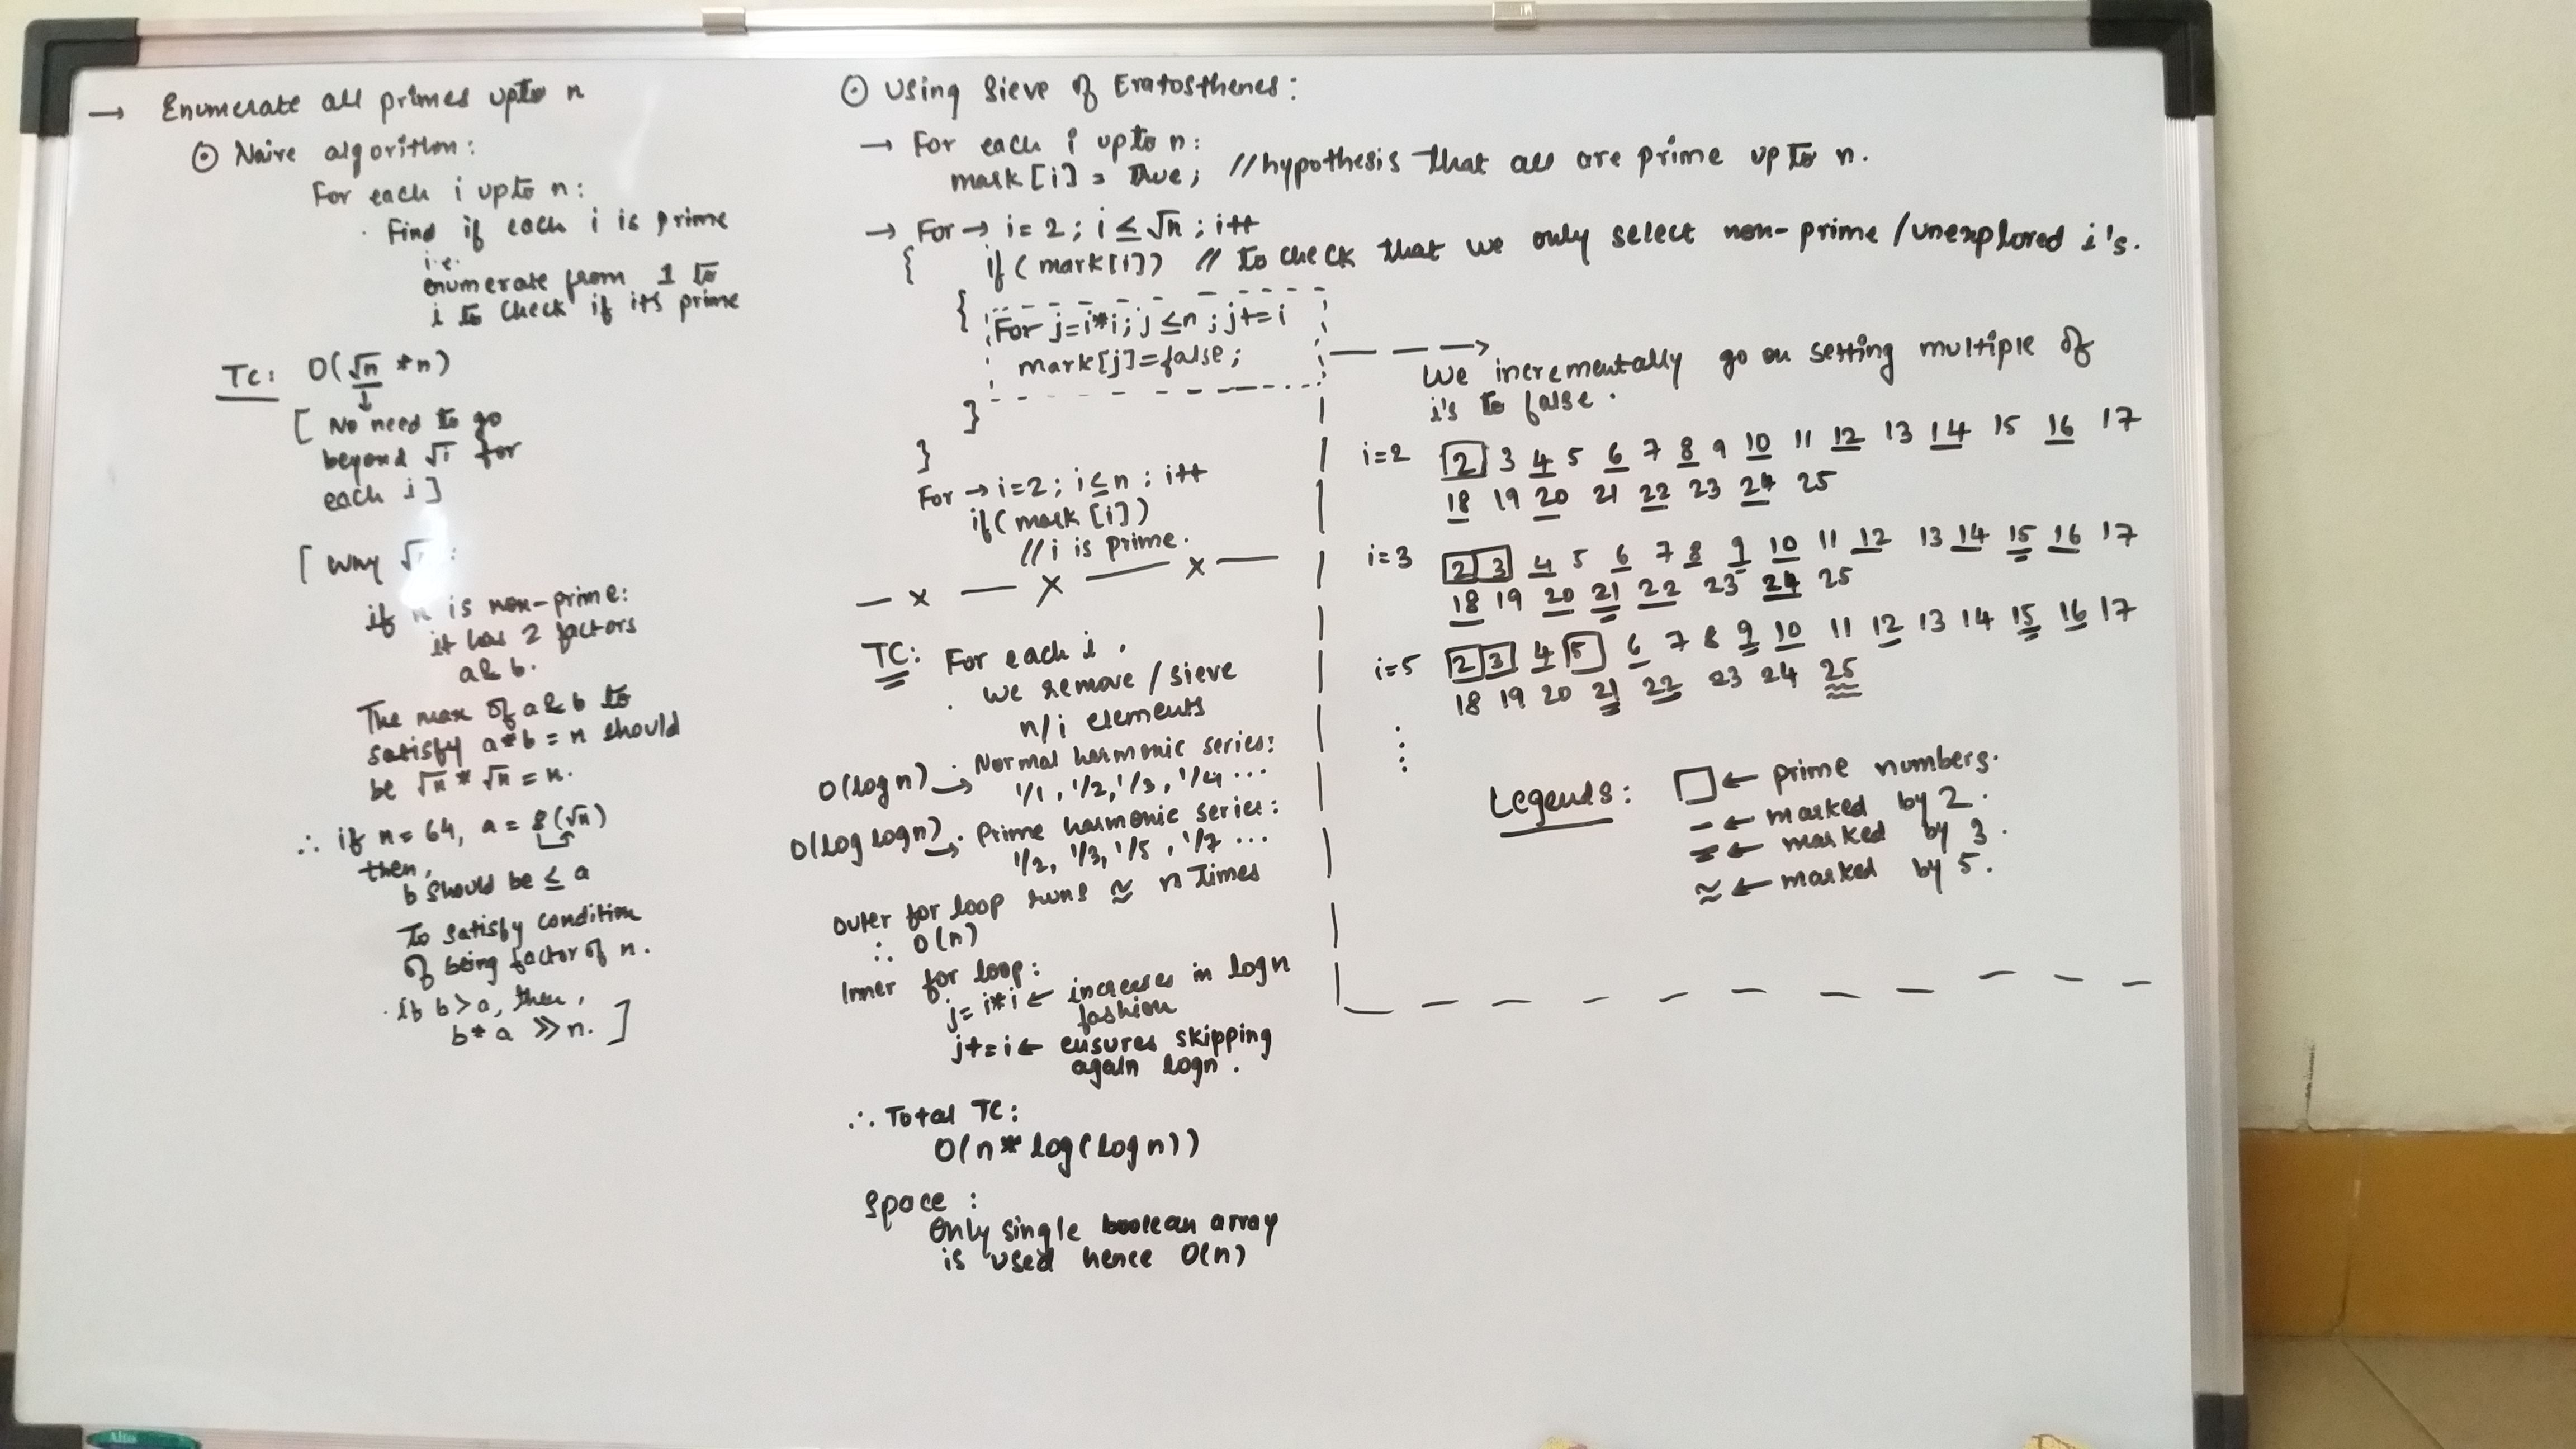 → Enumerate all primes upto n
⊙ Naive algorithm:
For each i upto n:
· Find if each i is prime
i.e.
enumerate from 1 to
i to check if its prime
TC: O(√n * n)
↓
[ No need to go
beyond √i for
each i ]
[ Why √ :
if n is non-prime:
it has 2 factors
a & b.
The max of a & b to
satisfy a*b = n should
be √n * √n = n.
∴ if n = 64, a = 8(√n)
then,
b should be ≤ a
To satisfy condition
of being factor of n.
· If b > a, then,
b * a >> n. ]
⊙ Using Sieve of Eratosthenes:
→ For each i upto n:
mark[i] = true; //hypothesis that all are prime up to n.
→ For → i = 2; i ≤ √n; i++
{ if(mark[i]) // to check that we only select non-prime/unexplored i's.
{ For j=i*i; j ≤n; j+=i
mark[j]=false;
}
}
For → i=2; i≤n; i++
if(mark[i])
//i is prime.
— x — x — x —
TC: For each i,
· we remove/sieve
n/i elements
O(log n) → · Normal harmonic series:
1/1, 1/2, 1/3, 1/4 ...
O(log log n) → · Prime harmonic series:
1/2, 1/3, 1/5, 1/7 ...
Outer for loop runs ≅ n times
∴ O(n)
Inner for loop:
j= i*i ← increases in logn
fashion
j+=i ← ensures skipping
again logn.
∴ Total TC:
O(n* log(logn))
Space:
Only single boolean array
is used hence O(n)
→ We incrementally go on setting multiple of
i's to false.
i=2 2 3 4 5 6 7 8 9 10 11 12 13 14 15 16 17
18 19 20 21 22 23 24 25
i=3 2 3 4 5 6 7 8 9 10 11 12 13 14 15 16 17
18 19 20 21 22 23 24 25
i=5 2 3 4 5 6 7 8 9 10 11 12 13 14 15 16 17
18 19 20 21 22 23 24 25
⋮
Legends: □ ← prime numbers.
— ← marked by 2.
= ← marked by 3.
≈ ← marked by 5.
Alto